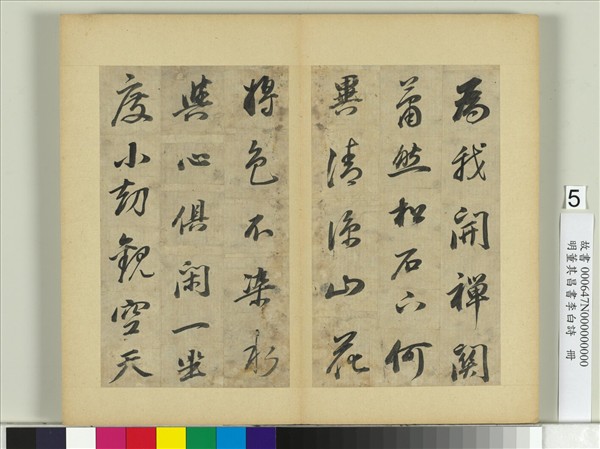 為我開禪關
蕭然松石下何
異清涼山花
將色不染
與心俱閑一坐
度小劫觀空天
5
故書 000647N000000000
明董其昌書李白詩 冊